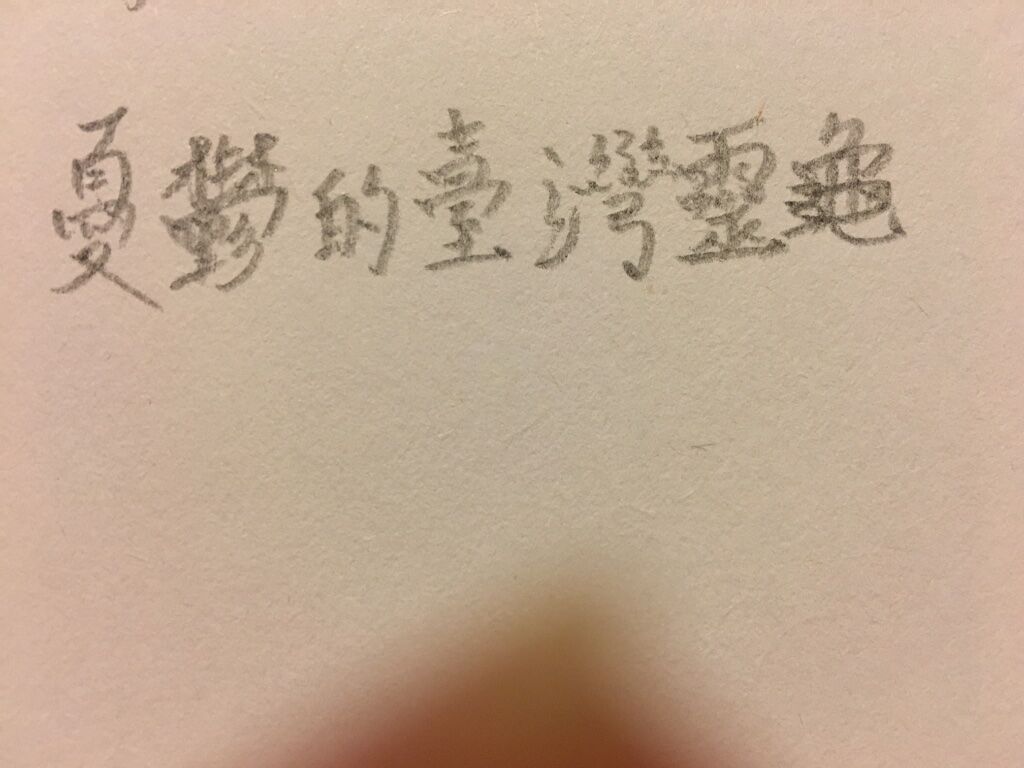 憂鬱的臺灣靈龜